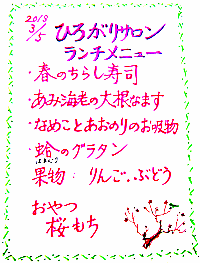 2018
3/5
ひろがりサロン
ランチメニュー
・春のちらし寿司
・あみ海老の大根なます
・なめことあおのりのお吸物
・蛤のグラタン
はまぐり
果物：りんご、ぶどう
おやつ
桜もち